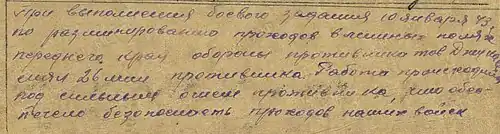 При выполнении боевого задания 10 января 43
по разминированию проходов в минных полях
переднего края обороны противника тов
снял 26 мин противника. Работа происходила
под сильным огнем противника, что обес-
печило безопасность проходов наших войск